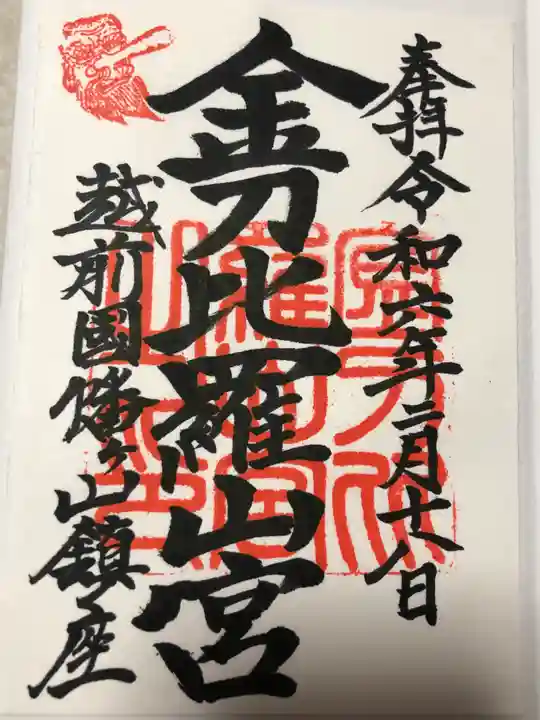 奉拝令和六年二月十八日
金刀比羅山宮
越前國幡ヶ山鎮座